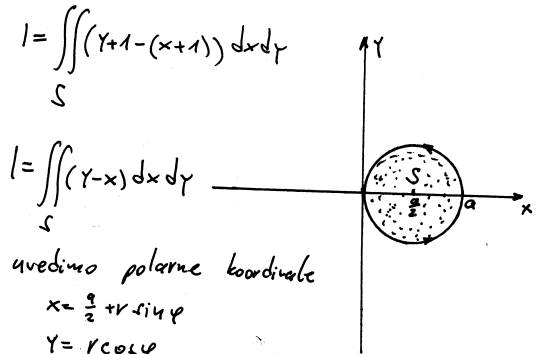 I = ∬ (y+1-(x+1)) dxdy
S
I = ∬ (y-x) dx dy
S
uvedimo polarne koordinate
x = a/2 + r sin φ
y = r cos φ
y
S
a/2
a
x